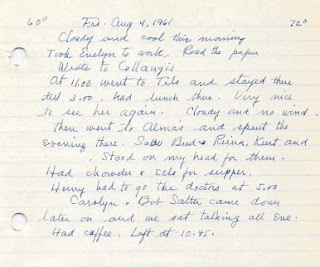 60° Fri. Aug 4, 1961 72°
Cloudy and cool this morning
Took Evelyn to work. Read the paper
Wrote to Collangis
At 11.00 went to Tilo and stayed there
till 3.00. had lunch there. Very nice
to see her again. Cloudy and no wind.
Then went to Alma's and spent the
evening there. Salts Bud & Reina, Kurt and
. Stood on my head for them.
Had chowder & eels for supper.
Henry had to go the doctors at 5.00
Carolyn & Bob Salter came down
later on and we sat talking all Eve.
Had coffee. Left at 10.45.